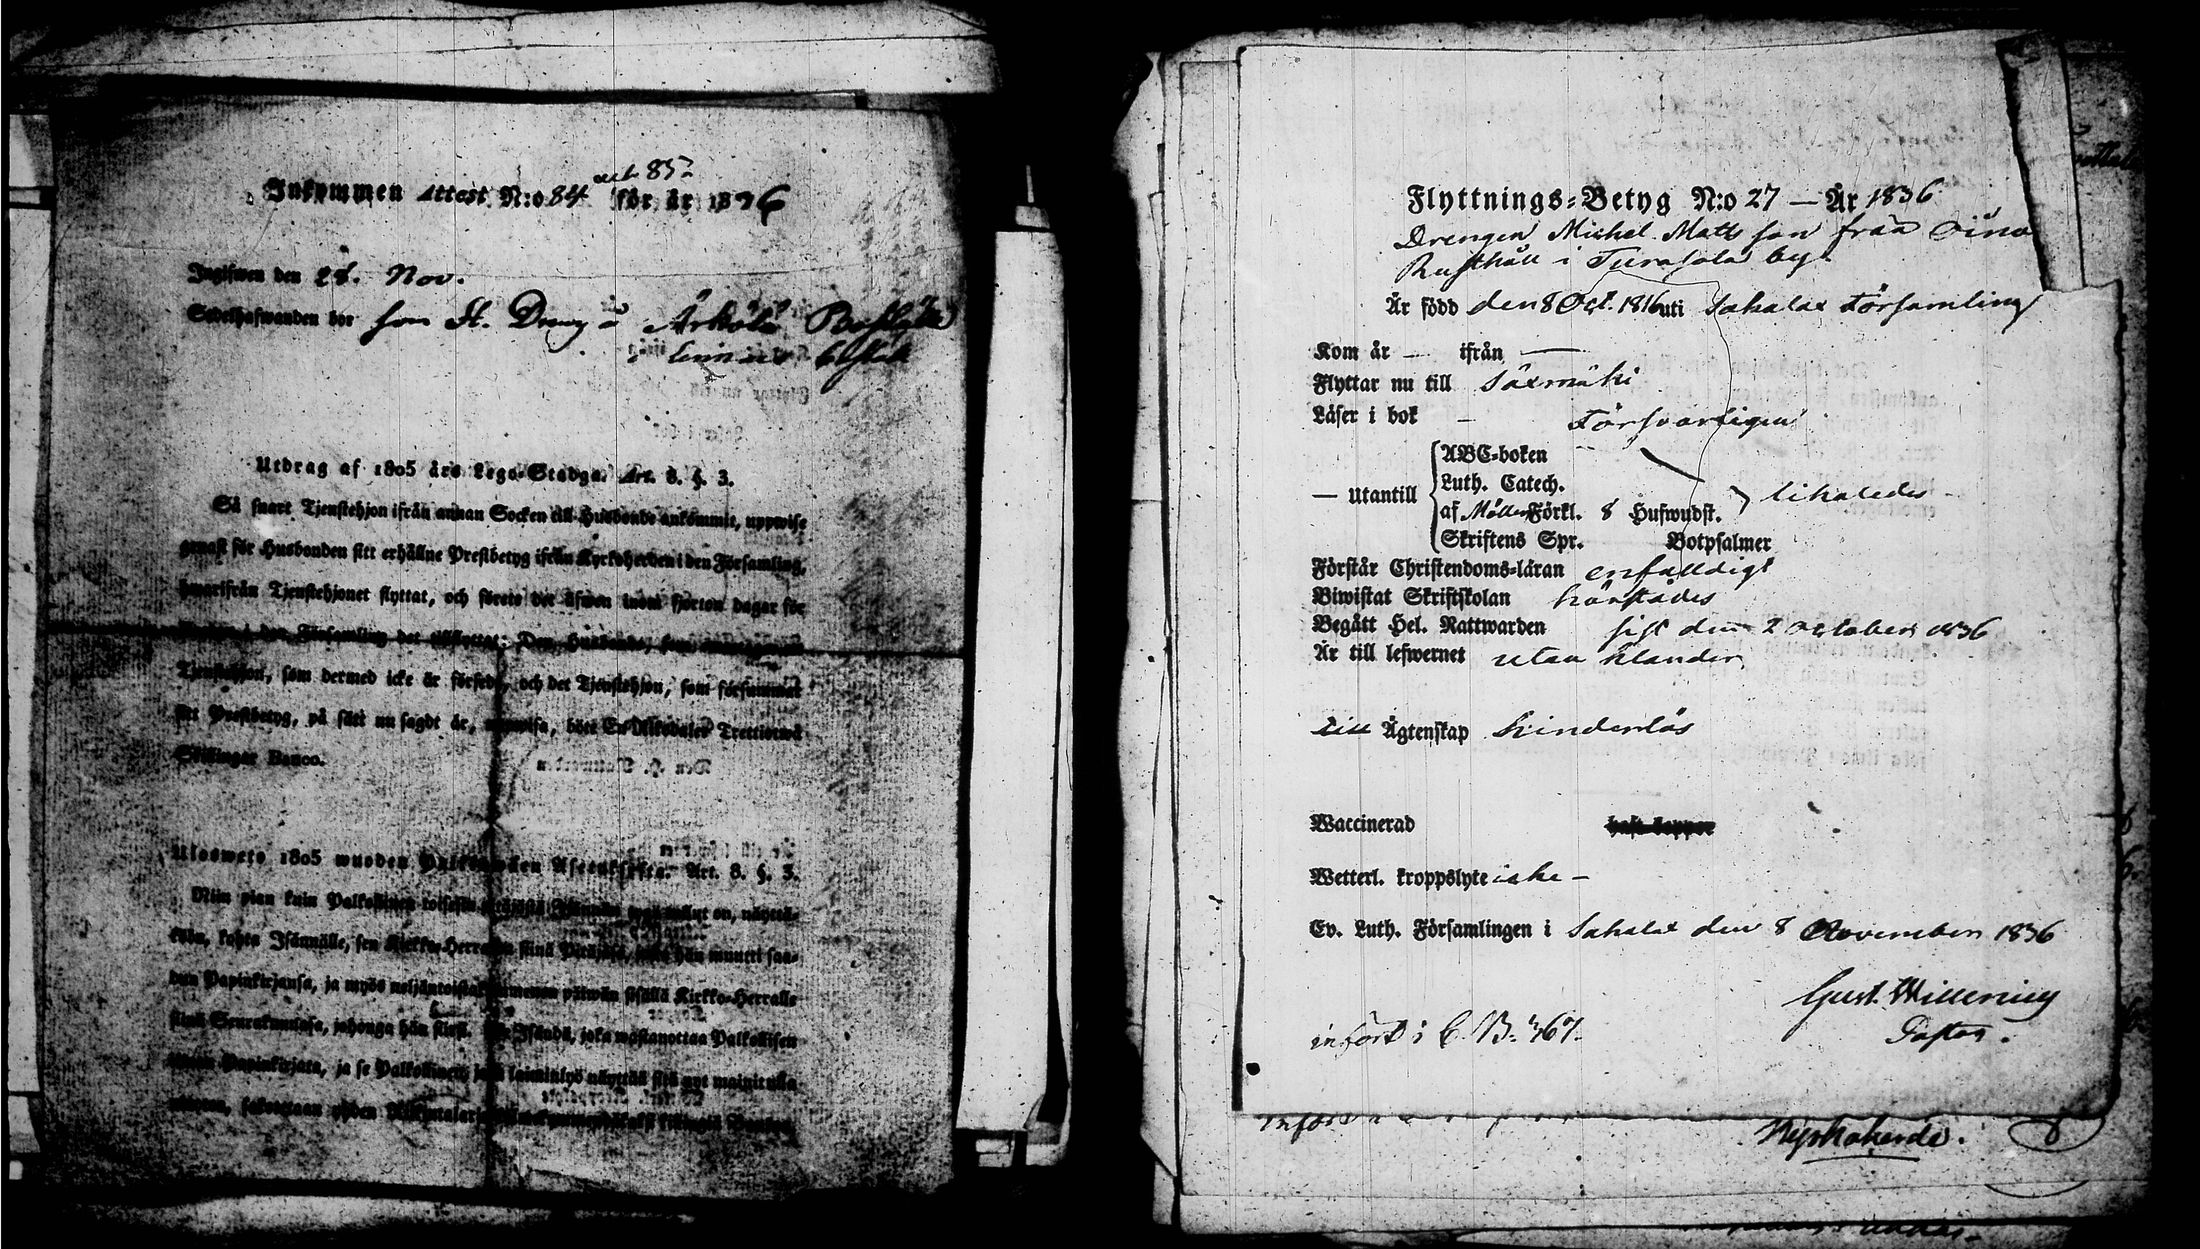 Inkommen Attest N:o 84 och 85 för år 1836
Ingifwen den 28. Nov.
Sedelhafwanden bor som St. Dreng
Utdrag af 1805 års Lego-Stadga. Art. 8. §. 3.
Så snart Tjenstehjon ifrån annan Socken till Husbonde ankommit, uppwise
genast för Husbonden sitt erhållne Prestbetyg ifrån Kyrkoherden i den Församling,
hwarifrån Tjenstehjonet flyttat, och förete det äfwen inom fjorton dagar för
i den Församling det tillflyttat: Den Husbonde, som
Tjenstehjon, som dermed icke är försedt, och det Tjenstehjon, som försummat
sitt Prestbetyg, på sätt nu sagdt är, uppwisa, böte En Riksdaler Trettiotwå
Skillingar Banco.
Ulosweto 1805 wuoden Palkkawäen Asetuksesta. Art. 8. §. 3.
Niin pian kuin Palkollinen toisesta on, näyttä-
kään, kohta Isännälle, sen Kirkko-Herralta siinä Pitäjässä, josta hän muutti saa-
dun Papinkirjansa, ja myös neljäntoistakymmenen päiwän sisällä Kirkko-Herralle
siinä Seurakunnasa, johonga hän siirsi. Se Isändä, joka wastanottaa Palkollisen
ilman Papinkirjata, ja se Palkollinen, joka laiminlyö näyttää sitä nyt mainitulla
Flyttnings-Betyg N:o 27 — År 1836
Drengen Michel Matts son från Oino
Rusthåll i Turesala by.
Är född den 8 Oct. 1816 uti Sahalax Församling
Kom år — ifrån —
Flyttar nu till Säxmäki
Läser i bok — Försvarligen
— Utantill
ABC-boken
Luth. Catech.
af Möllers Förkl. 8 Hufwudst. likaledes
Skriftens Spr. Botpsalmer
Förstår Christendoms-läran enfalldigt
Biwistat Skriftskolan härstädes
Begått Hel. Nattwarden sist den 2 October 1836
Är till lefwernet utan klander
till Ägtenskap hinderlös
Waccinerad haft koppor
Wetterl. kroppslyte icke —
Ev. Luth. Församlingen i Sahalax den 8 November 1836
Gust. Willenius
Pastor.
infört i C. B. 467.
Kyrkoherde.